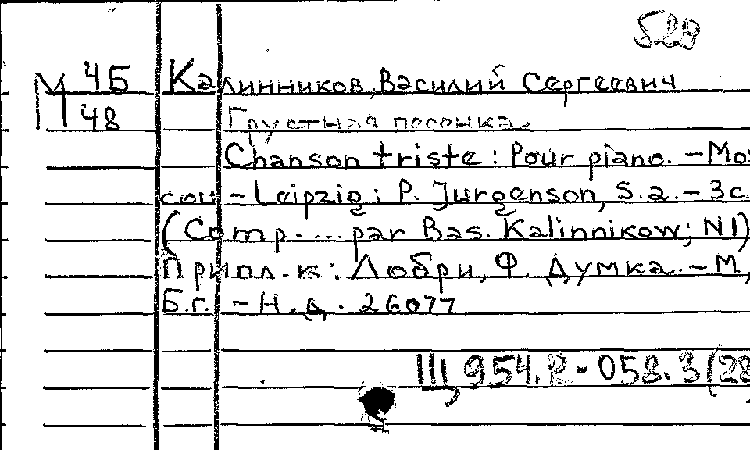 528
М 45 Калинников, Василий Сергеевич
48 Грустная песенка.
Chanson triste: Pour piano. – Mos
cou – Leipzig: P. Jurgenson, S. a. – 3c
(Comp. ... par Bas. Kalinnikow; N1)
Прилл. к: Добри, Ф. Думка. – М,
Б.г. – Н.д. 26077
Щ 954.2-058.3(28